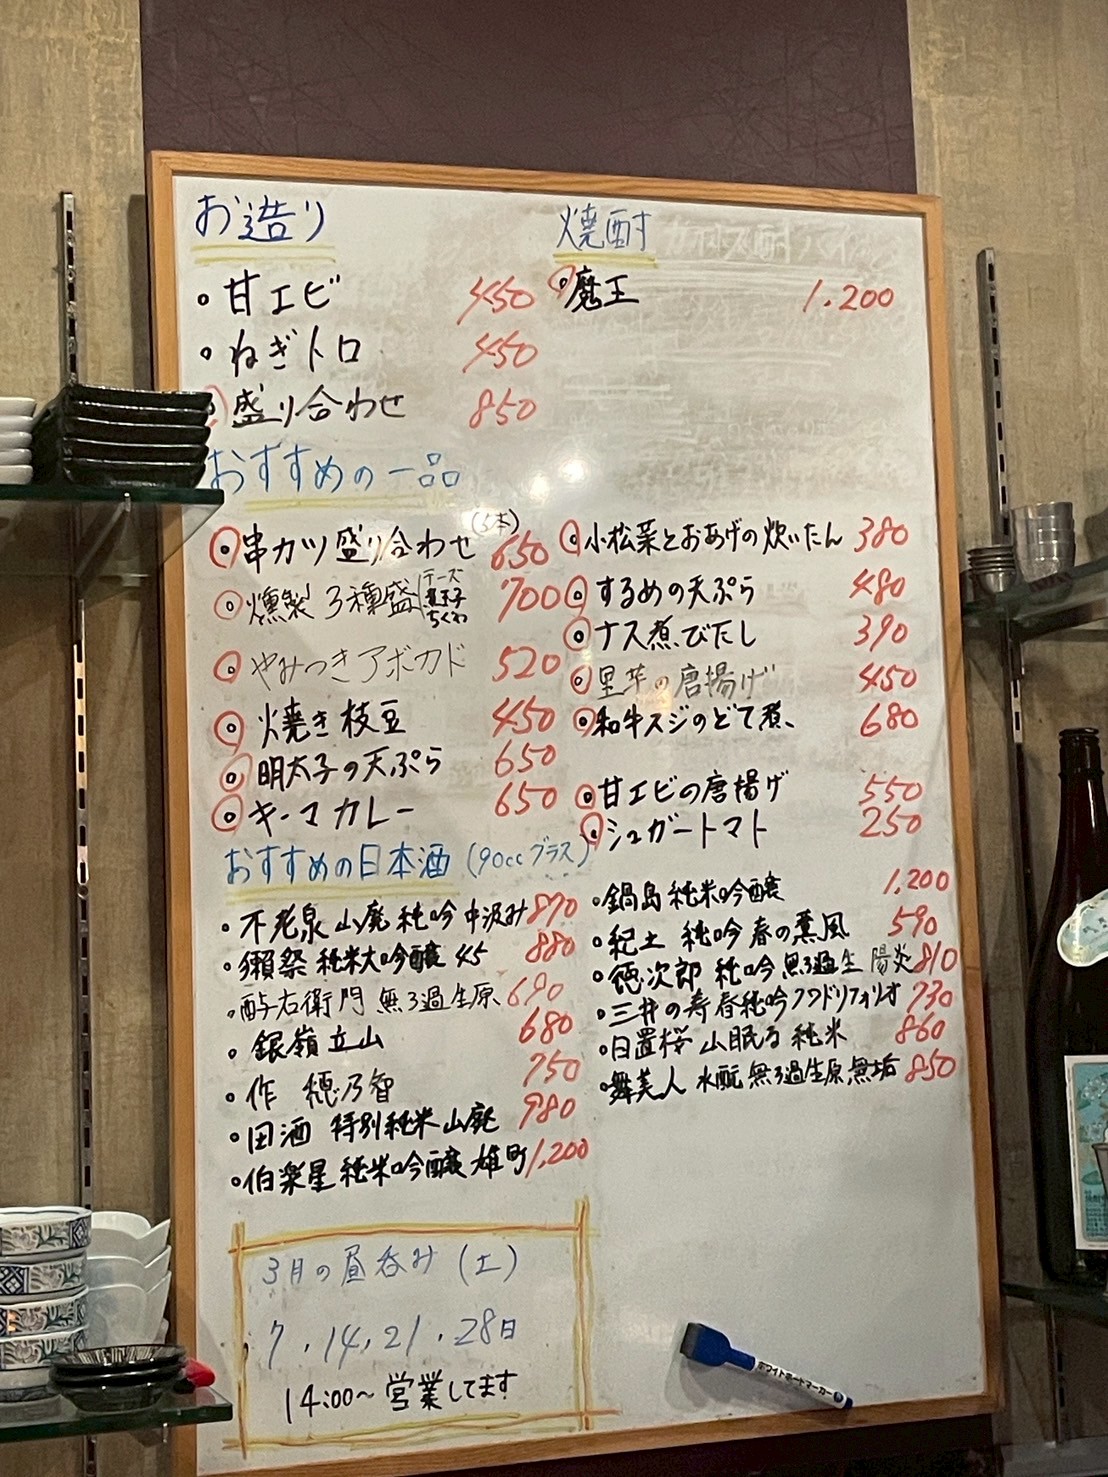 お造り
・甘エビ 450
・ねぎトロ 450
盛り合わせ 850
焼酎
魔王 1.200
おすすめの一品
串カツ盛り合わせ (5本) 650
燻製 3種盛 チーズ 煮玉子 ちくわ 700
やみつきアボカド 520
焼き枝豆 450
明太子の天ぷら 650
キーマカレー 650
小松菜とおあげの炊いたん 380
するめの天ぷら 480
ナス煮びたし 390
里芋の唐揚げ 450
和牛スジのどて煮 680
甘エビの唐揚げ 550
シュガートマト 250
おすすめの日本酒 (90ccグラス)
・不老泉 山廃 純吟 中汲み 870
・獺祭 純米大吟醸 45 880
・酉与右衛門 無ろ過生原 690
・銀嶺立山 680
・作 穂乃智 750
・田酒 特別純米山廃 980
・伯楽星 純米吟醸 雄町 1,200
・鍋島 純米吟醸 1,200
・紀土 純吟 春の薫風 590
・徳次郎 純吟 無ろ過生 陽炎 810
・三井の寿 春純吟 クワドリフォリオ 730
・日置桜 山眠る 純米 860
・舞美人 水酛 無ろ過生原 無垢 850
3月の昼呑み (土)
7.14.21.28日
14:00〜営業してます
ホワイトボードマーカー